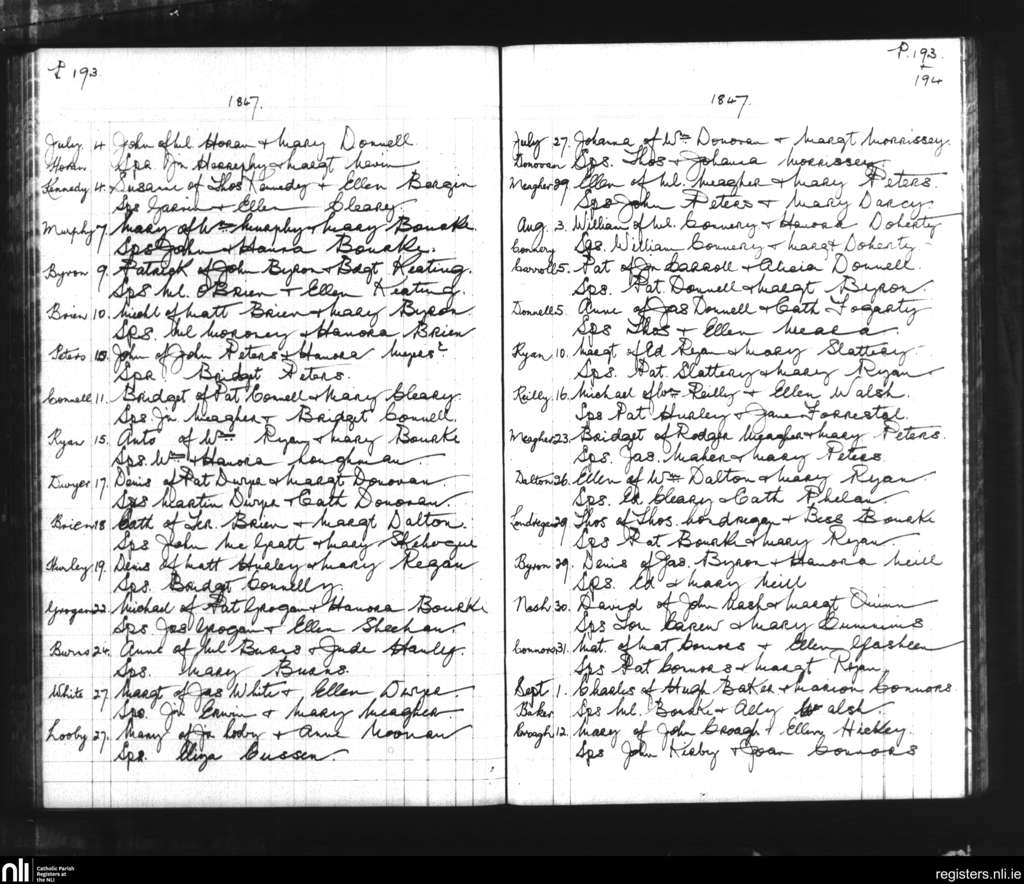 P 193
1847.
July 4 John of Ml Horan & Mary Donnell
Horan Spr. Jn Herrephy & Margt Nevin
Kennedy 4. Susanne of Thos Kennedy & Ellen Bergin
Sps Garrin & Ellen Cleary.
Murphy 7 Mary of Wm Murphy & Mary Bourke
Sps John & Hanra Bourke.
Byron 9. Patrick of John Byron & Bdgt Keating.
Sps Ml. O'Brien & Ellen Keating.
Brien 10. Michl of Matt Brien & Mary Byron
Sps. Ml Moroney & Hanora Brien
Peters 10. John of John Peters & Hanora Meyers?
Spr. Bridget Peters.
Connell 11. Bridget of Pat Connell & Mary Cleary.
Sps. Jn Meagher & Bridget Connell
Ryan 15. Anto of Wm Ryan & Mary Bourke
Sps. Wm & Hanora Loughman
Dwyer 17. Denis of Pat Dwyer & Margt Donovan
Sps Martin Dwyer & Cath Donovan
Brien 18 Cath of Ter. Brien & Margt Dalton.
Sps John McGratt & Mary
Hurley 19. Denis of Matt Hurley & Mary Regan
Sps. Bridget Connelly
Grogan 22. Michael of Pat Grogan & Hanora Bourke
Sps. Jas Grogan & Ellen Sheehan.
Burns 24. Anne of Ml Burns & Jude Hanley.
Sps. Mary Burns.
White 27. Margt of Jas White & Ellen Dwyer
Sps. Jn Erwin & Mary Meagher.
Looby 27. Mary of Jn Looby & Anne Noonan
Sps. Eliza Cussen.
P. 193
+
194
1847.
July 27. Johanna of Wm Donovan & Margt Morrissey.
Donovan Sps. Thos & Johanna Morrissey.
Meagher 29. Ellen of Ml. Meagher & Mary Peters.
Sps John Peters & Mary Darcy.
Aug. 3. William of Ml. Connery & Hanora Doherty
Connery Sps. William Connery & Margt Doherty.
Carroll 5. Pat of Jn Carroll & Alicia Donnell.
Sps. Pat Donnell & Margt Byron.
Donnell 5. Anne of Jas Donnell & Cath Fogarty
Sps Thos & Ellen Meara.
Ryan 10. Margt of Ed Ryan & Mary Slattery.
Sps. Pat. Slattery & Mary Ryan
Reilly 16. Michael of Wm Reilly & Ellen Walsh.
Sps Pat Hurley & Jane Forrestal.
Meagher 23. Bridget of Rodger Meagher & Mary Peters.
Sps. Jas. Maher & Mary Peters
Dalton 26. Ellen of Wm Dalton & Mary Ryan.
Sps. Ed Cleary & Cath Phelan.
Londregan 29. Thos of Thos. Londregan & Bess Bourke
Sps Pat Bourke & Mary Ryan
Byron 29. Denis of Jas. Byron & Hanora Neill
Sps. Ed & Mary Neill
Nash 30. David of John Nash & Margt Quinn
Sps Tou Carew & Mary Cummins
Connors 31. Mat. of Mat Connors & Ellen
Sps Pat Connors & Margt Ryan
Sept 1. Charles of Hugh Baker & Marion Connors.
Baker Sps Ml. Bourke & Ally Walsh.
Croagh 12. Mary of John Croagh & Ellen Hickey
Sps John Kirby & Joan Connors
nli
Catholic Parish
Registers at
the NLI
registers.nli.ie